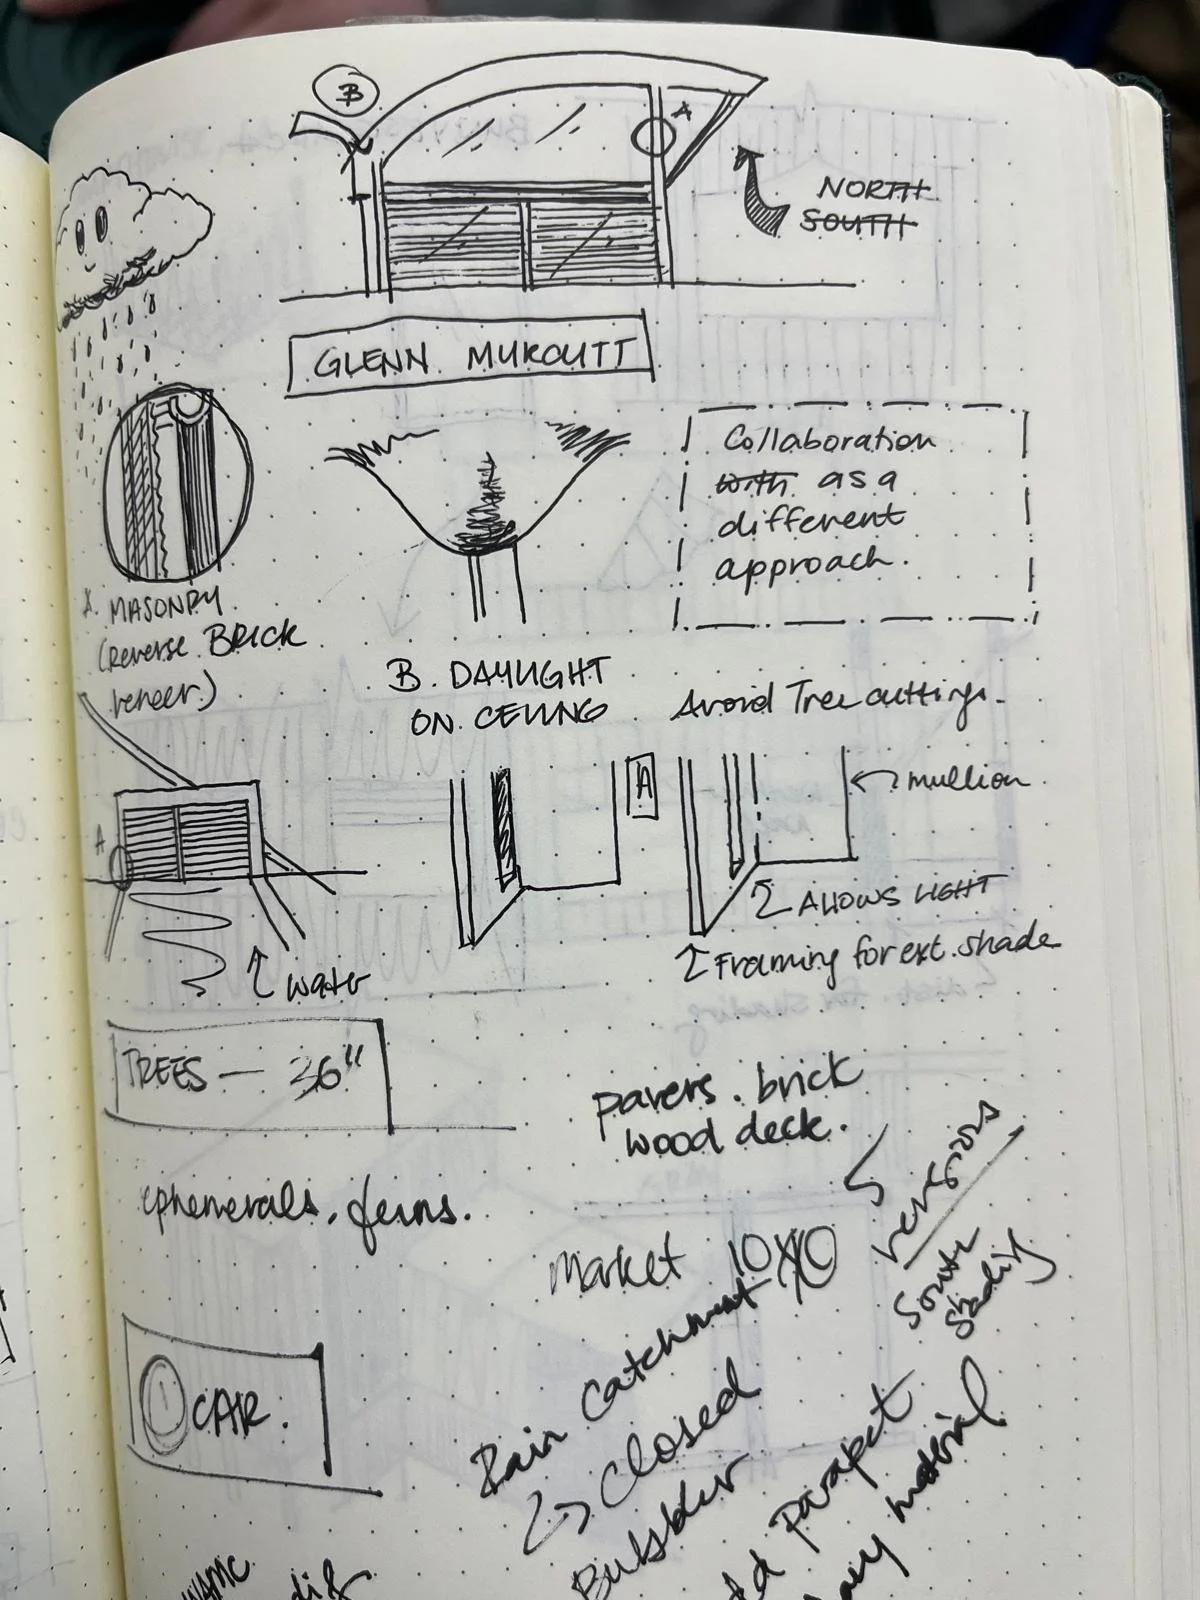 B
A
NORTH
SOUTH
GLENN MURCUTT
Collaboration
with as a
different
approach.
A. MASONRY
(reverse BRICK
veneer)
B. DAYLIGHT
ON CEILING
Avoid Tree cuttings.
A
A
mullion
ALLOWS LIGHT
Framing for ext. shade
water
TREES — 36"
pavers. brick
wood deck.
ephemerals. ferns.
versions
South
Shading
market 10X10
Rain Catchment
closed
1 CAR.
Parapet
material